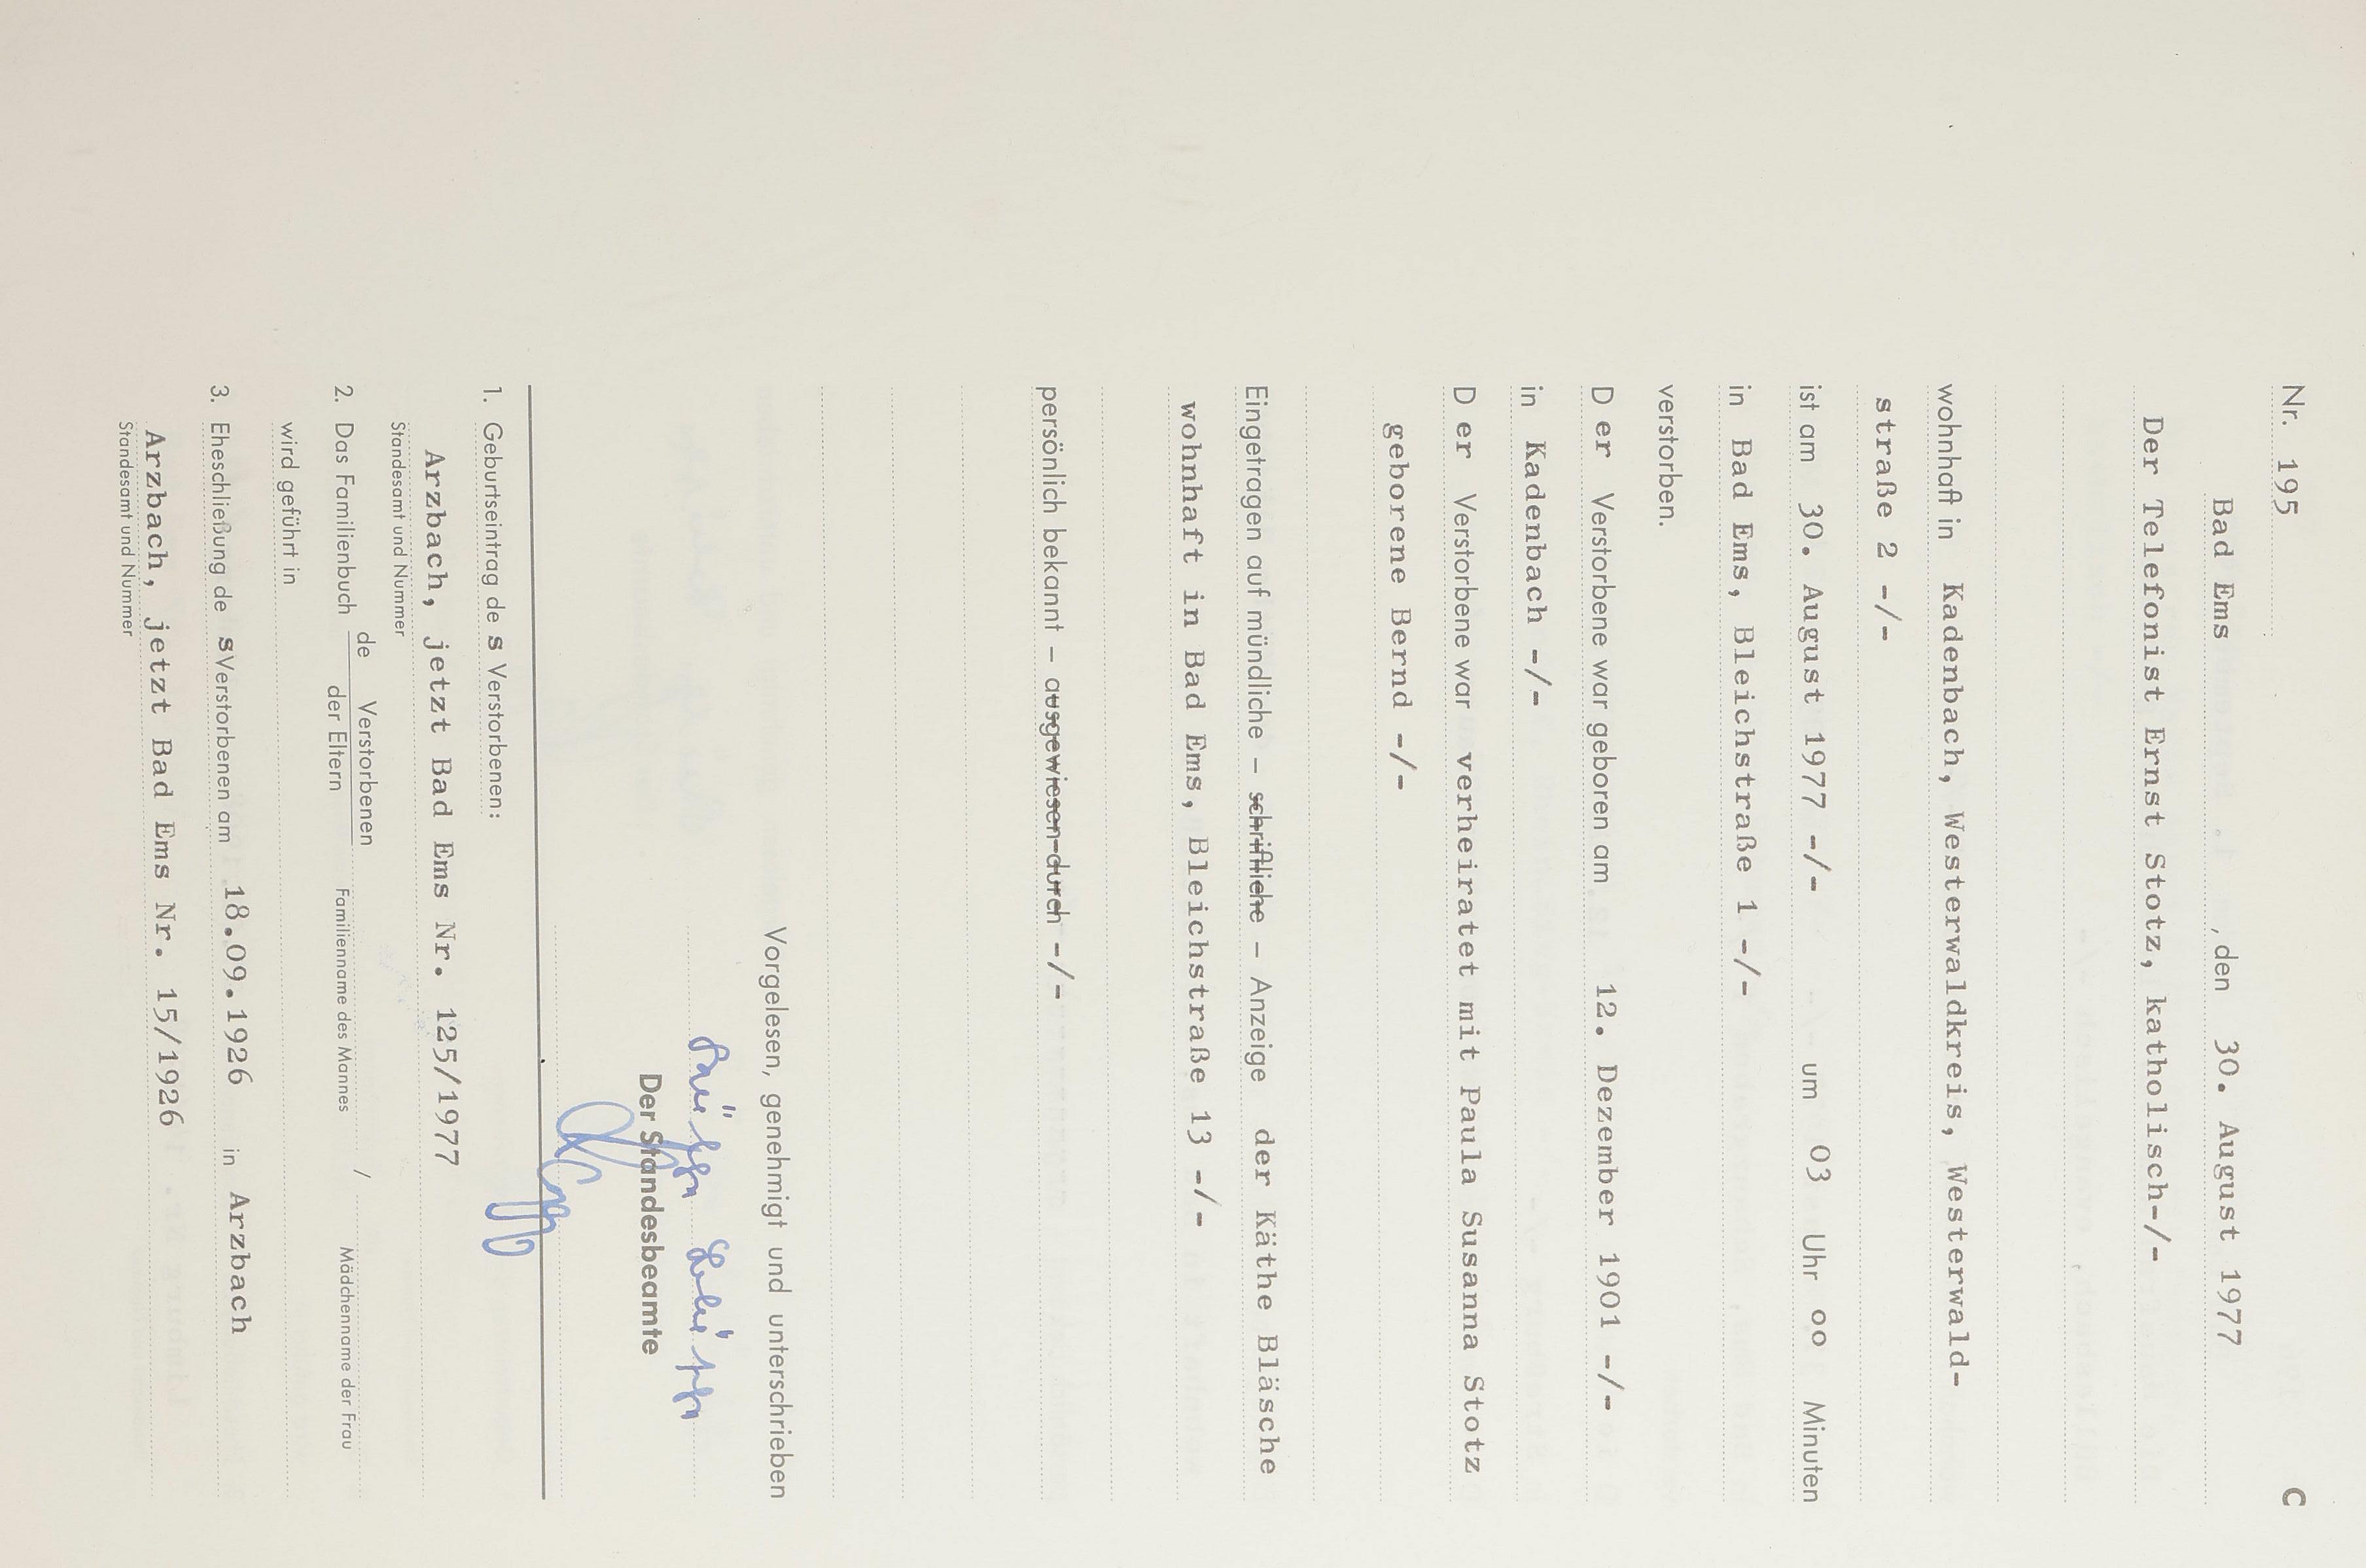 Nr. 195
C
Bad Ems, den 30. August 1977
Der Telefonist Ernst Stotz, katholisch-/-
wohnhaft in Kadenbach, Westerwaldkreis, Westerwald-
straße 2 -/-
ist am 30. August 1977 -/- um 03 Uhr oo Minuten
in Bad Ems, Bleichstraße 1 -/-
verstorben.
D er Verstorbene war geboren am 12. Dezember 1901 -/-
in Kadenbach -/-
D er Verstorbene war verheiratet mit Paula Susanna Stotz
geborene Bernd -/-
Eingetragen auf mündliche – schriftliche – Anzeige der Käthe Bläsche
wohnhaft in Bad Ems, Bleichstraße 13 -/-
persönlich bekannt – ausgewiesen durch -/-
Vorgelesen, genehmigt und unterschrieben
Der Standesbeamte
1. Geburtseintrag de s Verstorbenen:
Arzbach, jetzt Bad Ems Nr. 125/1977
Standesamt und Nummer
2. Das Familienbuch de Verstorbenen
der Eltern
Familienname des Mannes / Mädchenname der Frau
wird geführt in
3. Eheschließung de s Verstorbenen am 18.09.1926 in Arzbach
Arzbach, jetzt Bad Ems Nr. 15/1926
Standesamt und Nummer